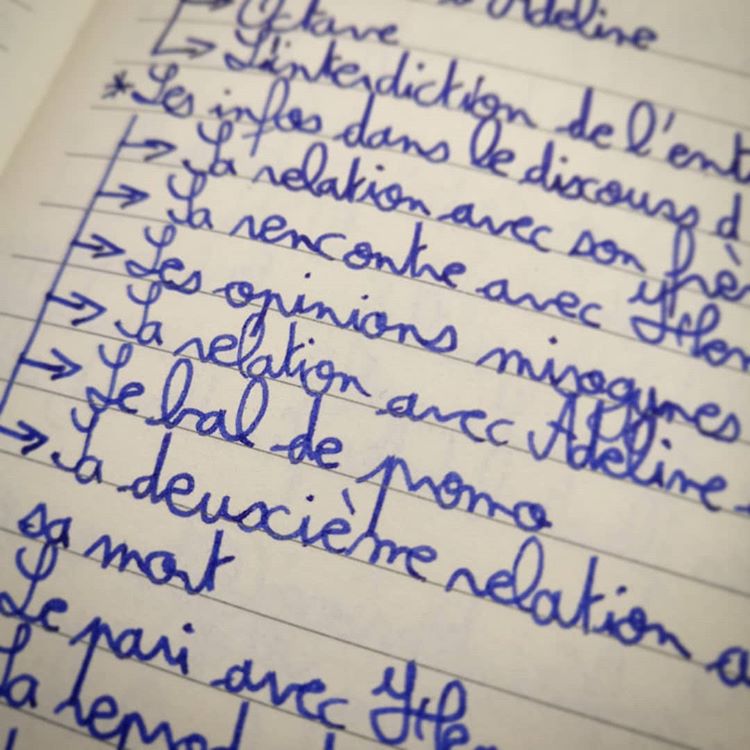 Adeline
Octave
L'interdiction de l'ent
* Les infos dans le discours d
→ La relation avec son frè
→ La rencontre avec
→ Les opinions misogynes
→ La relation avec Adeline
→ Le bal de promo
→ La deuxième relation a
sa mort
Le pari avec
La